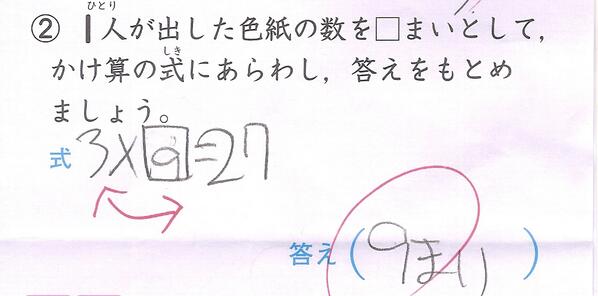 ② 1人が出した色紙の数を□まいとして，
かけ算の式にあらわし，答えをもとめ
ましょう。
式 3×9=27
答え（9まい）